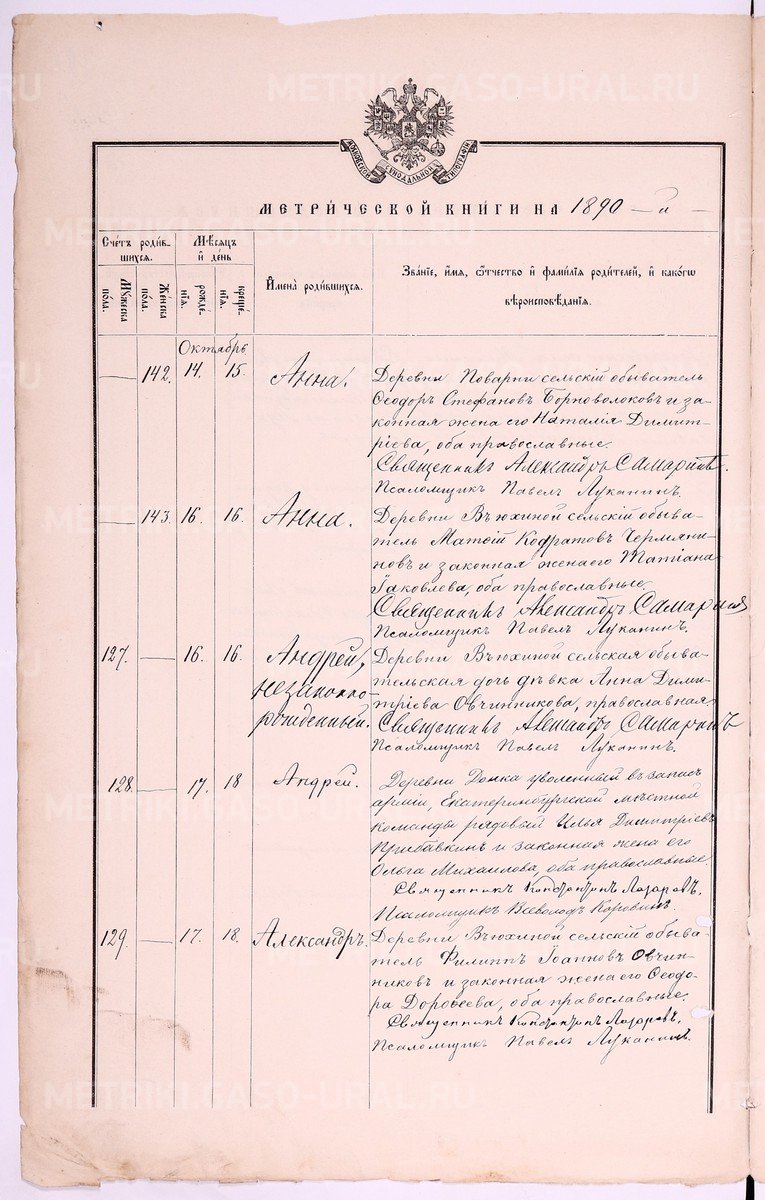 METRIKI.GASO-URAL.RU
МОСКОВСКОЙ СѴНОДАЛЬНОЙ ТИПОГРАФІИ
МЕТРИ́ЧЕСКОЙ КНИ́ГИ НА 1890 – й –
Сче́тъ роди́вшихся.
Мꙋ́жеска по́ла.
Же́нска по́ла.
Мѣ́сяцъ и҆ де́нь
рожде́нїѧ.
креще́нїѧ.
И҆мена̀ роди́вшихсѧ.
Зва́нїе, и҆́мѧ, ѻ҆́тчество и҆ фами́лїѧ роди́телей, и҆ како́гѡ
вѣроисповѣ́данїѧ.
Октябрь
— 142. 14. 15. Анна.
Деревни Поварни сельскій обыватель
Ѳеодоръ Стефановъ Борноволоковъ и за-
конная жена его Наталія Димит-
ріева, оба православные.
Священникъ Александръ Самаринъ.
Псаломщикъ Павелъ Луканинъ.
— 143. 16. 16. Анна.
Деревни Вьюхиной сельскій обыва-
тель Матѳій Кодратовъ Чермяни-
новъ и законная жена его Татіана
Іаковлева, оба православные.
Священникъ Александръ Самаринъ
Псаломщикъ Павелъ Луканинъ.
127. — 16. 16. Андрей,
незаконно-
рожденный.
Деревни Вьюхиной сельская обыва-
тельская дочь дѣвка Анна Дими-
тріева Овчинникова, православная.
Священникъ Александръ Самаринъ
Псаломщикъ Павелъ Луканинъ.
128. — 17. 18 Андрей.
Деревни уволенный въ запасъ
арміи, Екатеринбургской мѣстной
команды рядовый Илья Димитріевъ
Прибавкинъ и законная жена его
Ольга Михаилова, оба православные.
Священникъ Константинъ Лазаревъ.
Псаломщикъ Всеволодъ Коровинъ.
129. — 17. 18. Александръ.
Деревни Вьюхиной сельскій обыва-
тель Филиппъ Іоанновъ Овчин-
никовъ и законная жена его Ѳеодо-
ра Дороѳеева, оба православные.
Священникъ Константинъ Лазаревъ.
Псаломщикъ Павелъ Луканинъ.
METRIKI.GASO-URAL.RU